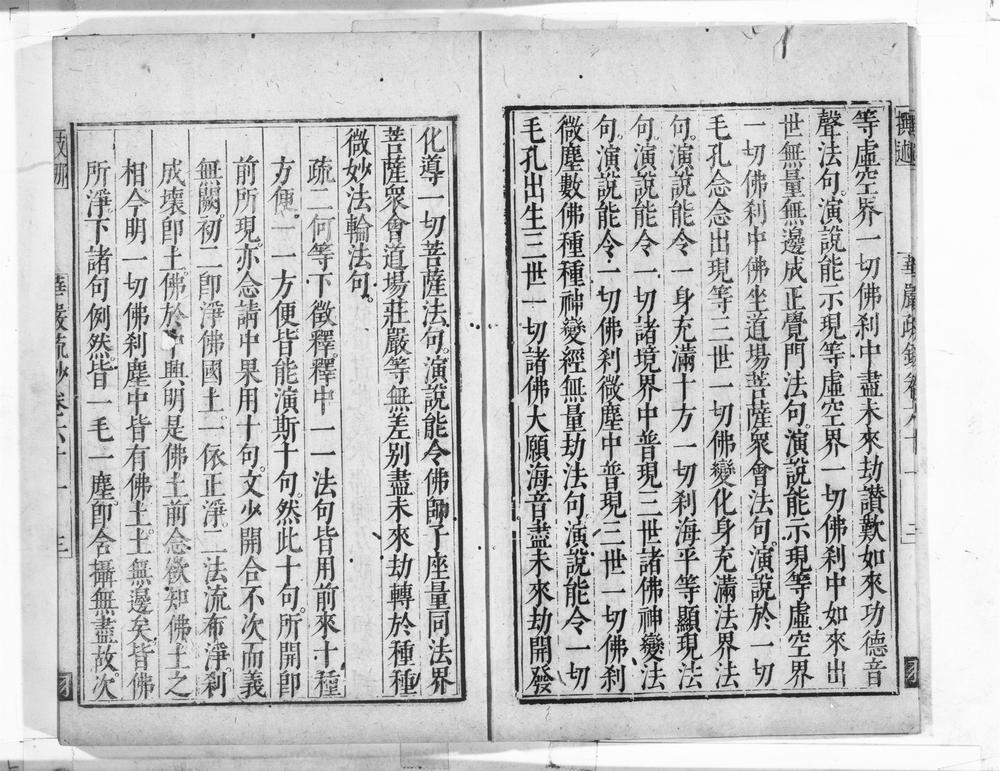 撰述
華嚴疏鈔卷六十一
三
等虛空界一切佛刹中盡未來劫讚歎如來功德音
聲法句。演說能示現等虛空界一切佛刹中如來出
世無量無邊成正覺門法句。演說能示現等虛空界
一切佛刹中佛坐道場菩薩眾會法句。演說於一切
毛孔念念出現等三世一切佛變化身充滿法界法
句。演說能令一身充滿十方一切刹海平等顯現法
句。演說能令一切諸境界中普現三世諸佛神變法
句。演說能令一切佛刹微塵中普現三世一切佛刹
微塵數佛種種神變經無量劫法句。演說能令一切
毛孔出生三世一切諸佛大願海音盡未來劫開發
化導一切菩薩法句。演說能令佛師子座量同法界
菩薩眾會道場莊嚴等無差別盡未來劫轉於種種
微妙法輪法句。
疏二何等下徵釋。釋中一一法句皆用前來十種
方便。一一方便皆能演斯十句。然此十句。所開卽
前所現。亦念請中果用十句。文少開合不次而義
無闕。初一卽淨佛國土。一依正淨。二法流布淨。刹
成壞卽土。佛於中興明是佛土前念欲知佛土之
相今明一切佛刹塵中皆有佛土。土無邊矣。皆佛
所淨。下諸句例然。皆一毛一塵。卽含攝無盡故。次
華嚴疏鈔卷六十一
三